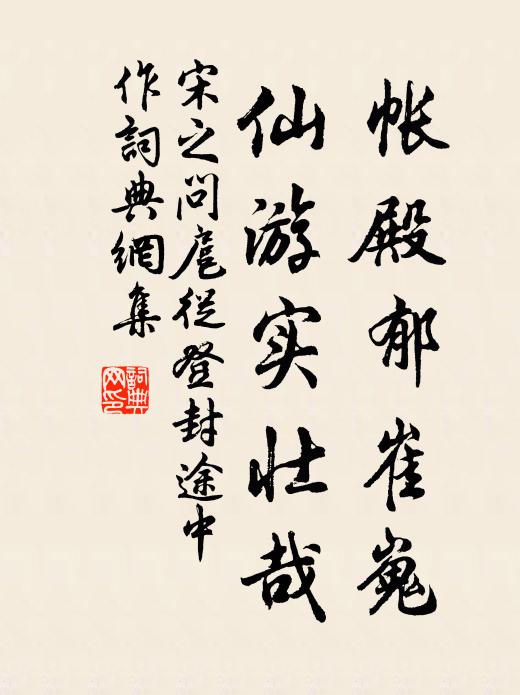 帐殿郁崔嵬
仙游实壮哉
宋之问扈從登封途中
作詞典網集
詞典网印